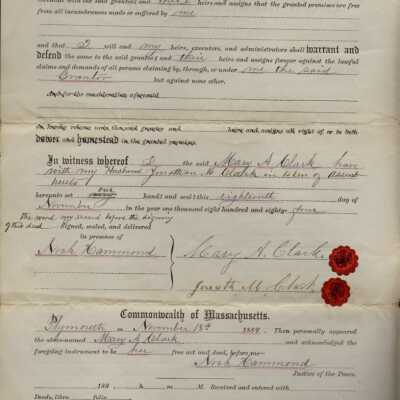 covenant with the said grantees and their heirs and assigns that the granted premises are free
from all incumbrances made or suffered by me
and that I will and my heirs, executors, and administrators shall warrant and
defend the same to the said grantees and their heirs and assigns forever against the lawful
claims and demands of all persons claiming by, through, or under me the said
Grantor
but against none other.
And for the consideration aforesaid
heirs and assigns all right of or to both
dower and homestead in the granted premises.
In witness whereof I the said Mary A. Clark have
with my Husband Jonathan M Clark in token of assent
hereto
hereunto set our hands and seals this eighteenth day of
November in the year one thousand eight hundred and eighty four
The word my
of this deed Signed, sealed, and delivered
in presence of
Noah Hammond
Mary A. Clark
M. Clark
Commonwealth of Massachusetts.
Plymouth ss November 18th 1884. Then personally appeared
the above-named Mary A Clark and acknowledged the
foregoing instrument to be her free act and deed, before me—
Noah Hammond
Justice of the Peace.
188 , h. m. M. Received and entered with
Deeds, libro folio